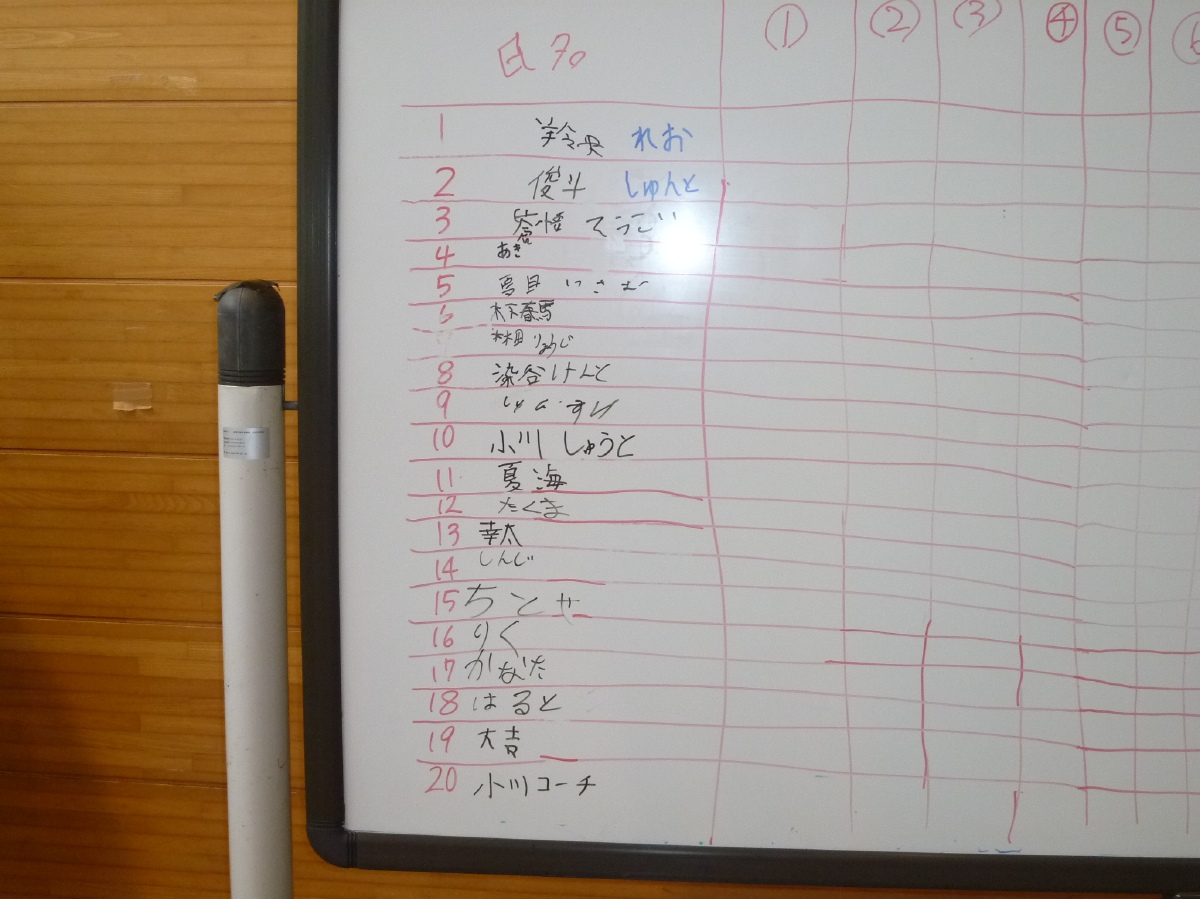 氏名 ① ② ③ ④ ⑤ ⑥
1 羚央 れお
2 俊斗 しゅんと
3 蒼悟 そうご
4 あき
5 いさむ
6 木下春馬
りゅうじ
8 染谷けんと
9 しゅんすけ
10 小川しゅうと
11 夏海
12 たくま
13 幸太
14 しんじ
15 ちとせ
16 りく
17 かなた
18 はると
19 大吉
20 小川コーチ